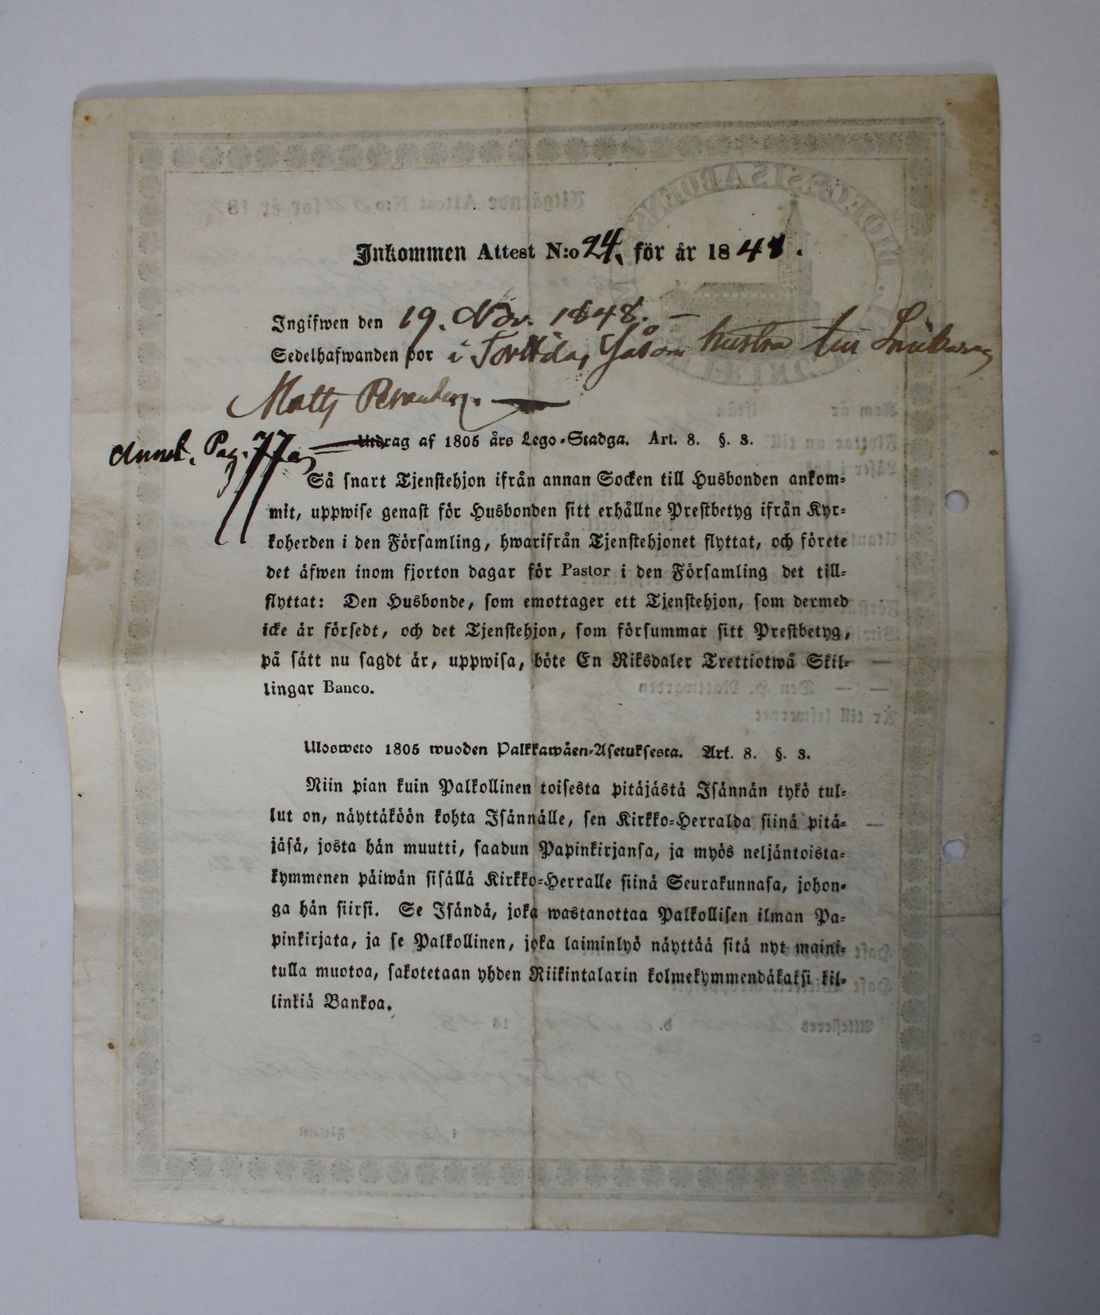 Inkommen Attest N:o 24. för år 1848.
Ingifwen den 19. Nov. 1848. –
Sedelhafwanden bor i Torttila, såsom hustru till
Matts
Pag. 77
Utdrag af 1805 års Lego-Stadga. Art. 8. §. 3.
Så snart Tjenstehjon ifrån annan Socken till Husbonden ankom-
mit, uppwise genast för Husbonden sitt erhållne Prestbetyg ifrån Kyr-
koherden i den Församling, hwarifrån Tjenstehjonet flyttat, och förete
det äfwen inom fjorton dagar för Pastor i den Församling det till-
flyttat: Den Husbonde, som emottager ett Tjenstehjon, som dermed
icke är försedt, och det Tjenstehjon, som försummar sitt Prestbetyg,
på sätt nu sagdt är, uppwisa, böte En Riksdaler Trettiotwå Skil-
lingar Banco.
Ulosweto 1805 wuoden Palkkawäen-Asetuksesta. Art. 8. §. 3.
Niin pian kuin Palkollinen toisesta pitäjästä Isännän tykö tul-
lut on, näyttäköön kohta Isännälle, sen Kirkko-Herralda siinä pitä-
jäsä, josta hän muutti, saadun Papinkirjansa, ja myös neljäntoista-
kymmenen päiwän sisällä Kirkko-Herralle siinä Seurakunnasa, johon-
ga hän siirsi. Se Isändä, joka wastanottaa Palkollisen ilman Pa-
pinkirjata, ja se Palkollinen, joka laiminlyö näyttää sitä nyt maini-
tulla muotoa, sakotetaan yhden Riikintalarin kolmekymmendäkaksi kil-
linkiä Bankoa.